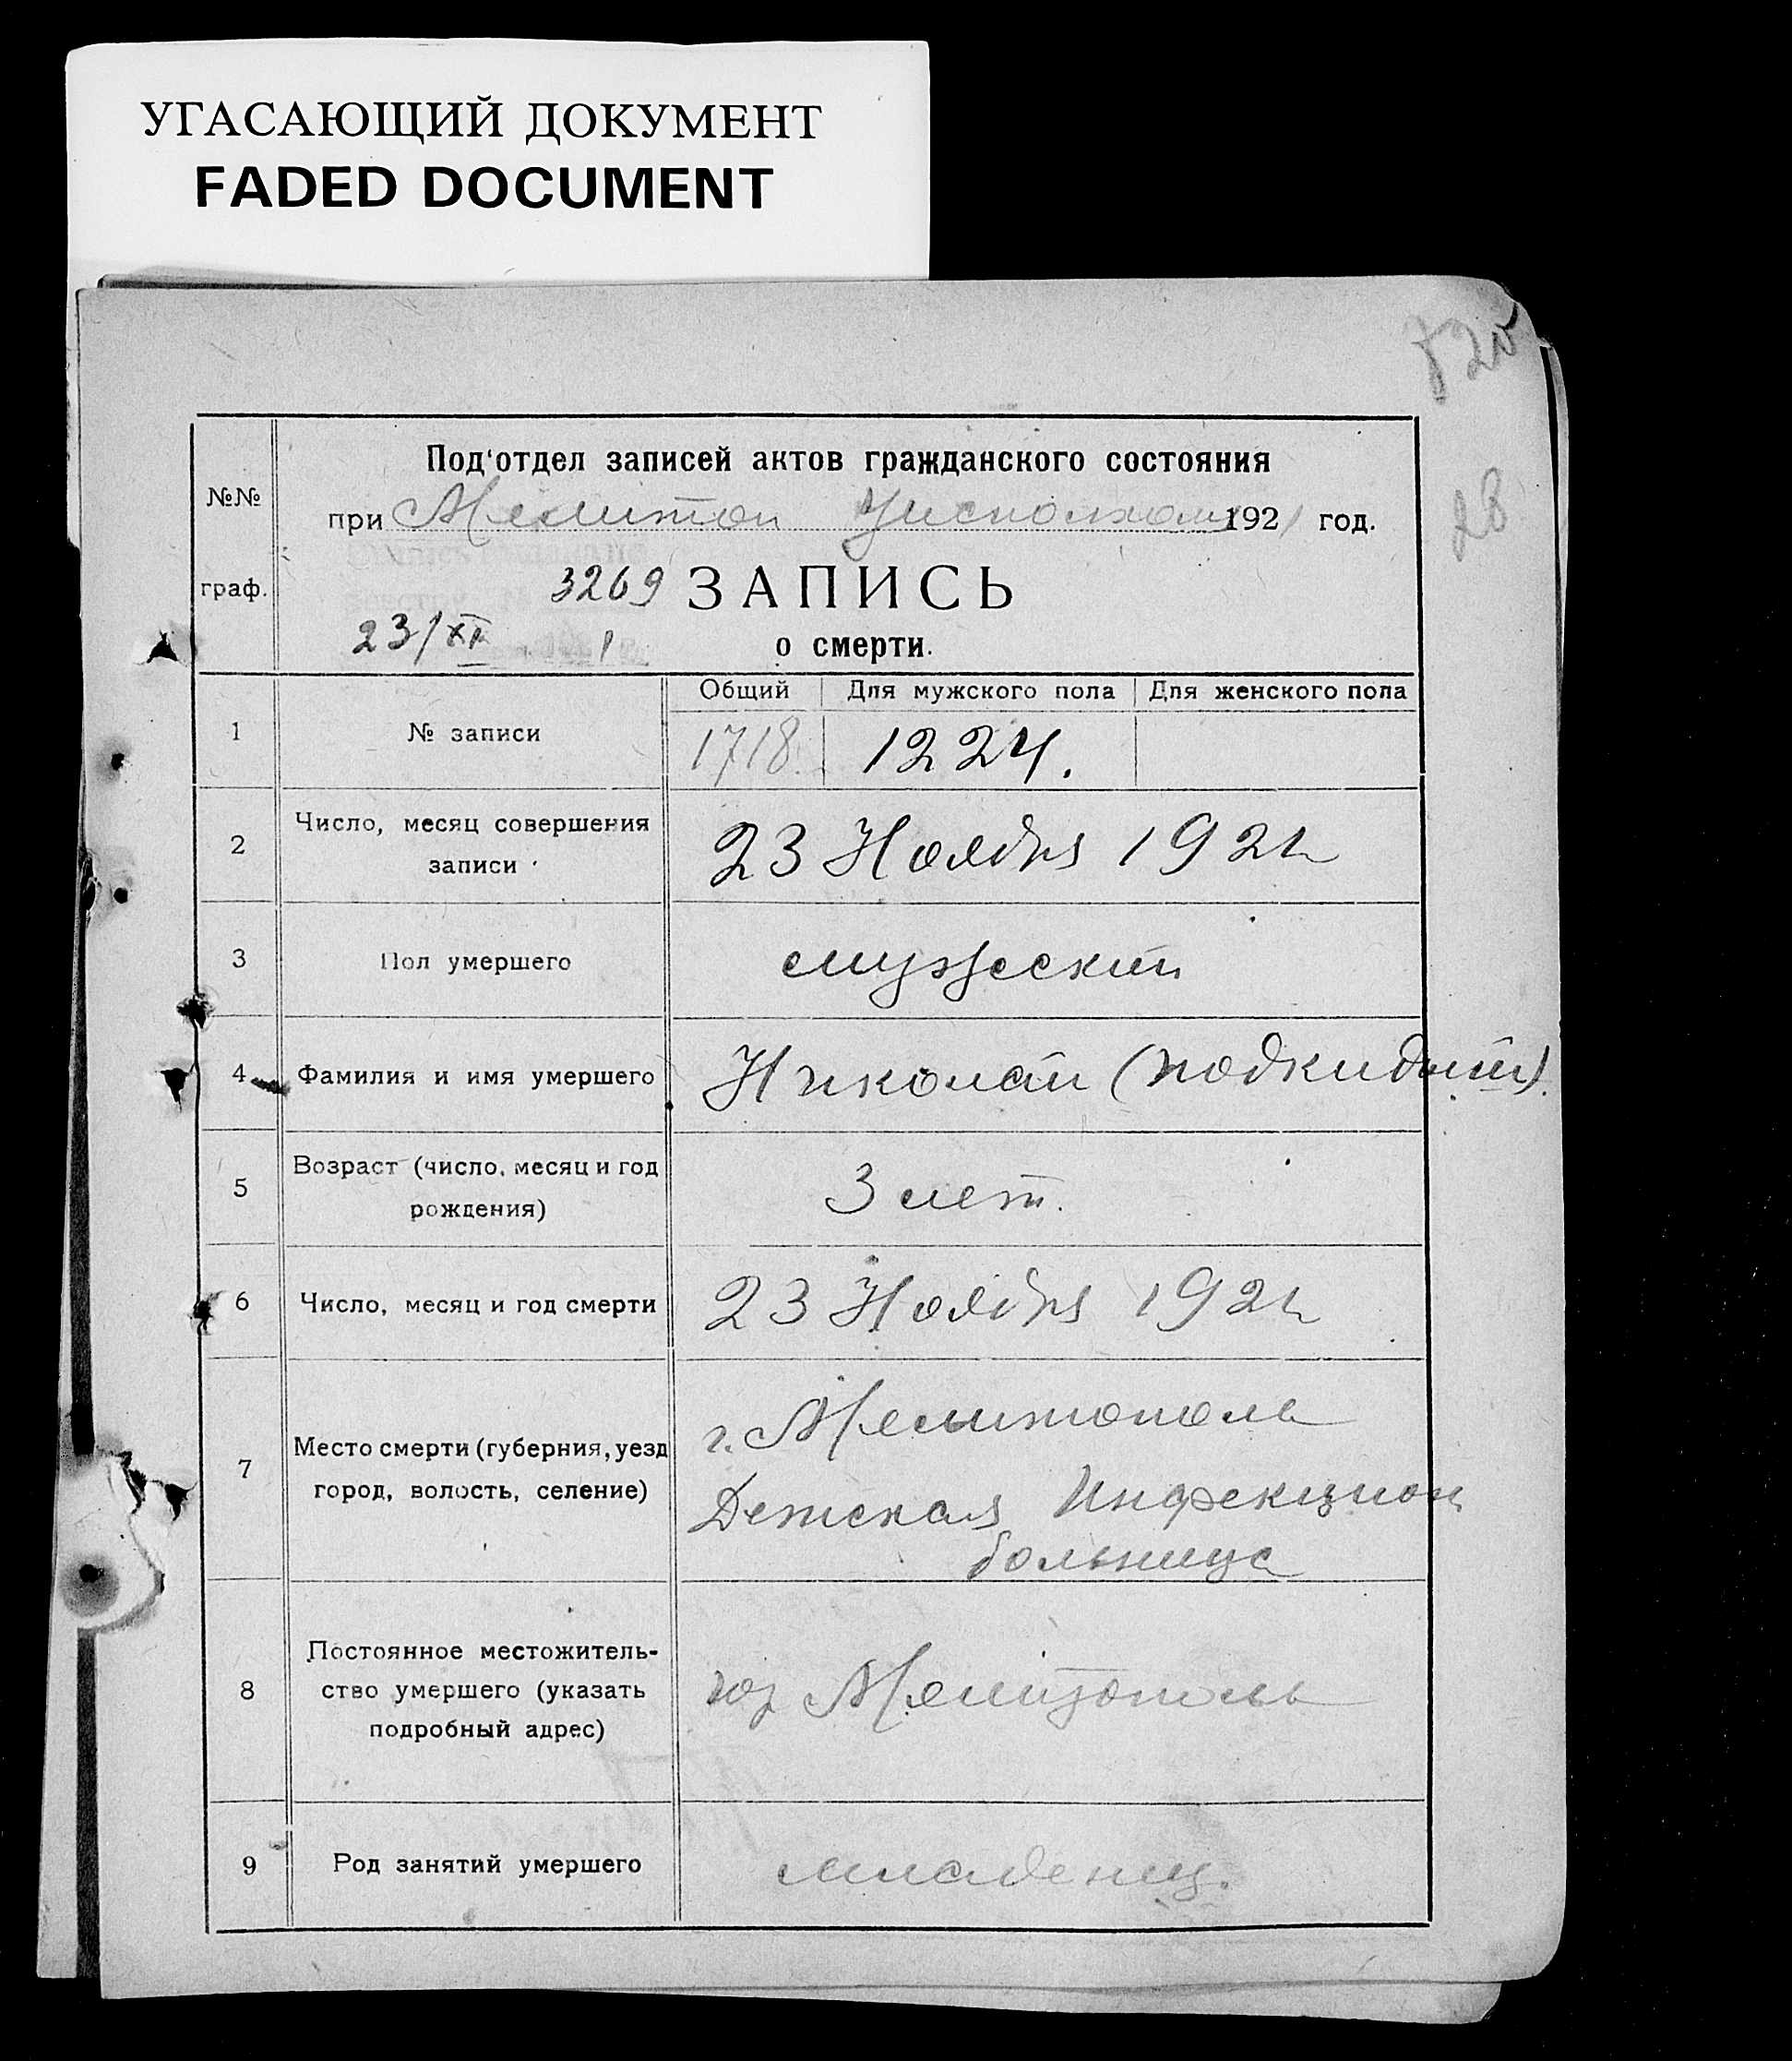 УГАСАЮЩИЙ ДОКУМЕНТ
FADED DOCUMENT
28
№№
граф.
Под'отдел записей актов гражданского состояния
при Мелитоп Уисполкоме 1921 год.
3269 ЗАПИСЬ
23/XI 1
о смерти.
Общий Для мужского пола Для женского пола
1 № записи 1718. 1224.
2 Число, месяц совершения
записи
23 Ноября 1921
3 Пол умершего мужеский
4 Фамилия и имя умершего Николай (подкидыш).
5 Возраст (число, месяц и год
рождения)
3 лет.
6 Число, месяц и год смерти 23 Ноября 1921
7 Место смерти (губерния, уезд
город, волость, селение)
г. Мелитополь
Детская Инфекцион
больница
8 Постоянное местожитель-
ство умершего (указать
подробный адрес)
гор Мелитополь
9 Род занятий умершего младенец.